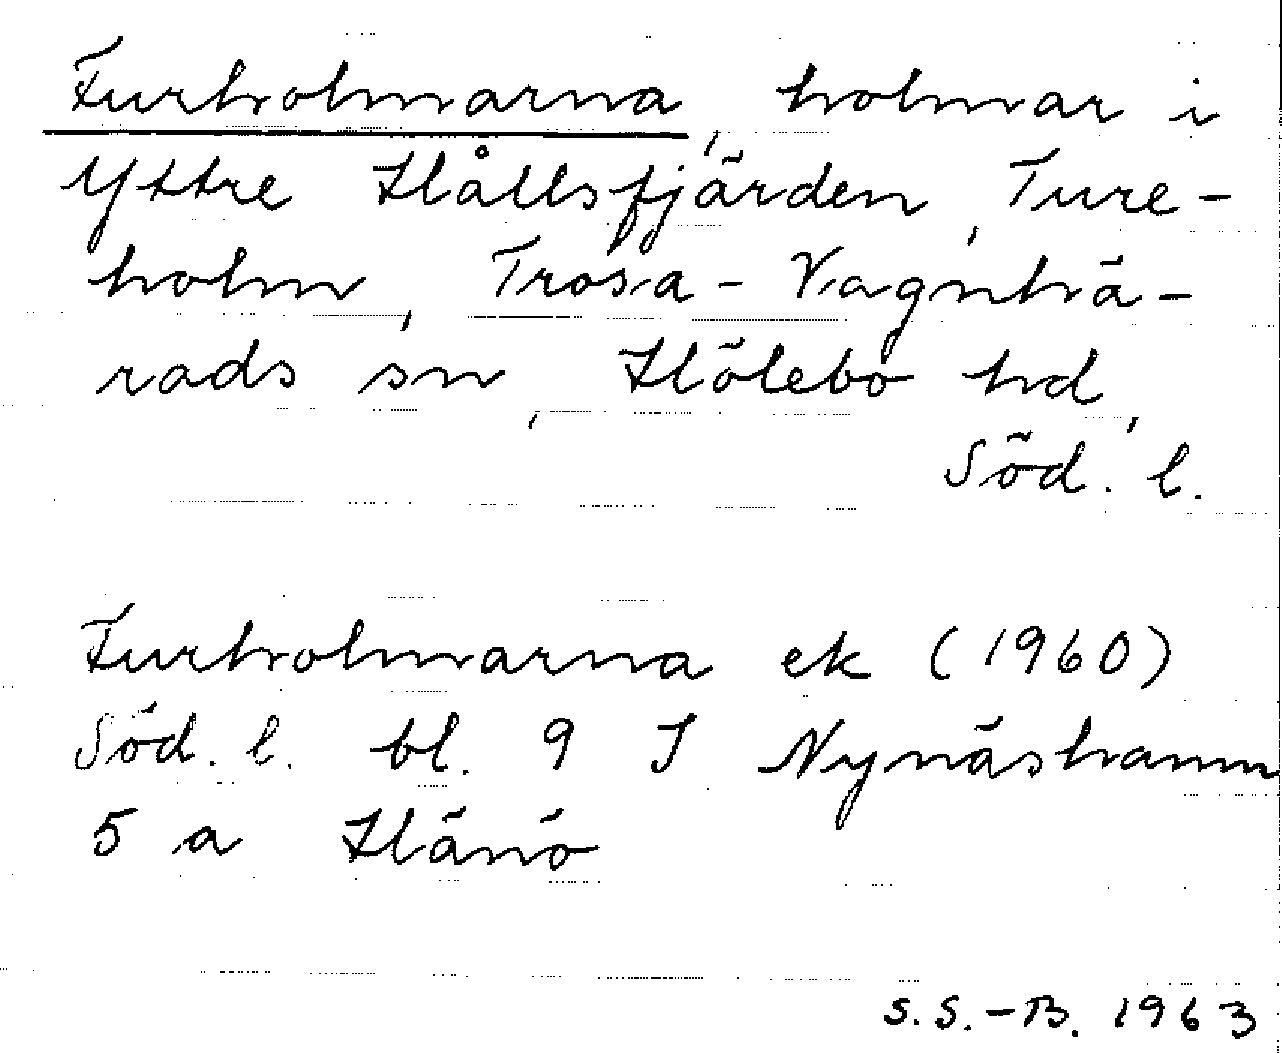 Furholmarna, holmar i
Yttre Hållsfjärden, Ture-
holm, Trosa-Vagnhä-
rads sn, Hölebo hd,
Söd. l.
Furholmarna ek (1960)
Söd. l. bl. 9 I Nynäshamn
5 a Hånö
S.S.-B. 1963